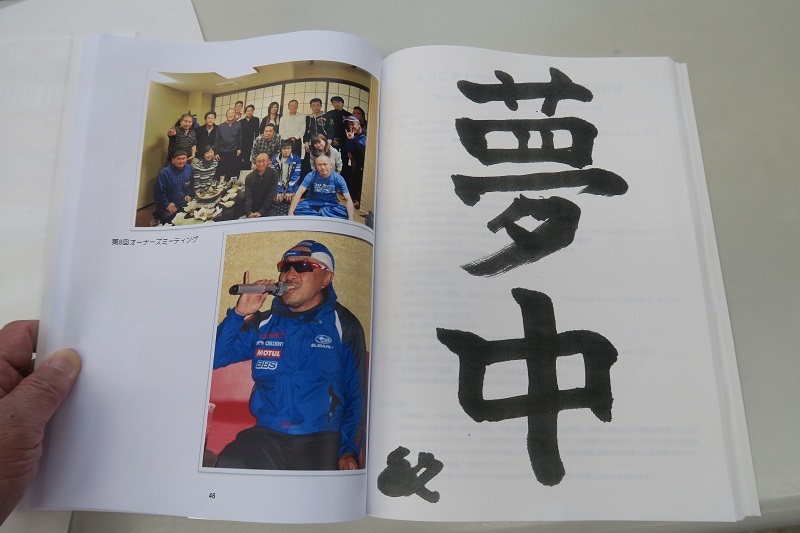 第8回オーナーズミーティング
ORIENT
SUBARU
MOTUL
BBS
46
夢中